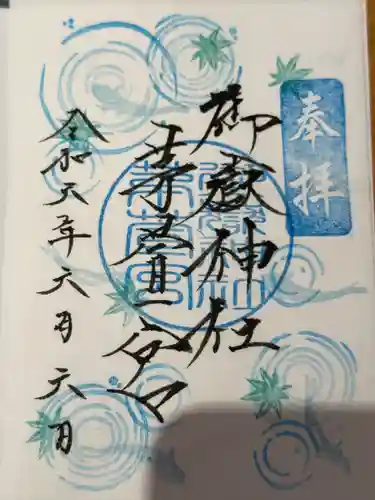 奉拝
御嶽神社
茅萱宮
令和六年六月六日